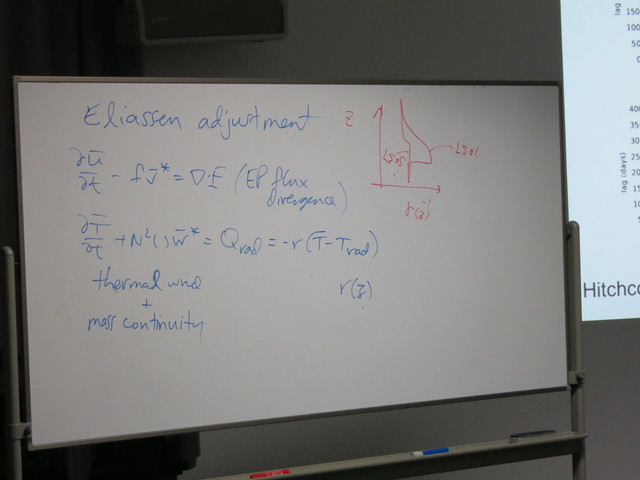 Eliassen adjustment
∂ū/∂t - f v̄* = ∇·F (EP flux
divergence)
∂T̄/∂t + N²( ) w̄* = Q_rad = -r (T̄ - T_rad)
thermal wind
+
mass continuity
r(z)
z
r(z)
lag
150
100
50
0
400
35
30
25
20
15
10
lag (days)
Hitchco